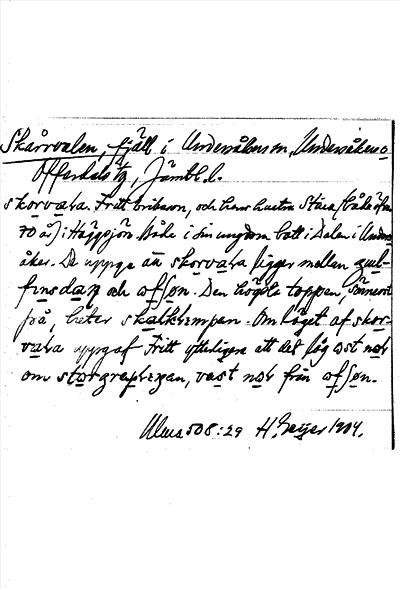 Skårrvalen, fjäll i Undersåkers sn, Undersåkers o
Offerdals tg, Jämtl. l.
skorvaɬa. Fritt Eriksson, och hans hustru Stina (både öfver
70 år) i Häggsjön. Både i sin ungdom bott i Dalen i Unders-
åker. De uppge att skorvaɬa ligger mellan gul-
finsdaɬ och ofsøn. Den högsta toppen, sönner i-
från, heter skaɬkɬimpen. Om läget af skor-
vaɬa uppgaf Fritt ytterligare att det låg ost nor
om storgrøphøgan, vest nor från ofsøn.
Ulma 508:29 H. Geijer 1909.